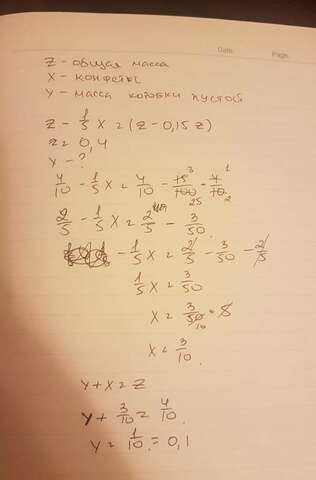 Date: Page:
Z - общая масса
X - конфеты
Y - масса коробки пустой
Z - 1/5 X = (Z - 0,15 Z)
Z = 0,4
Y - ?
4/10 - 1/5 X = 4/10 - 15/100 · 4/10
3 1 25 2
2/5 - 1/5 X = 2/5 - 3/50
- 1/5 X = 2/5 - 3/50 - 2/5
1/5 X = 3/50
X = 3/50 · 5
10
X = 3/10.
Y + X = Z
Y + 3/10 = 4/10
Y = 1/10. = 0,1